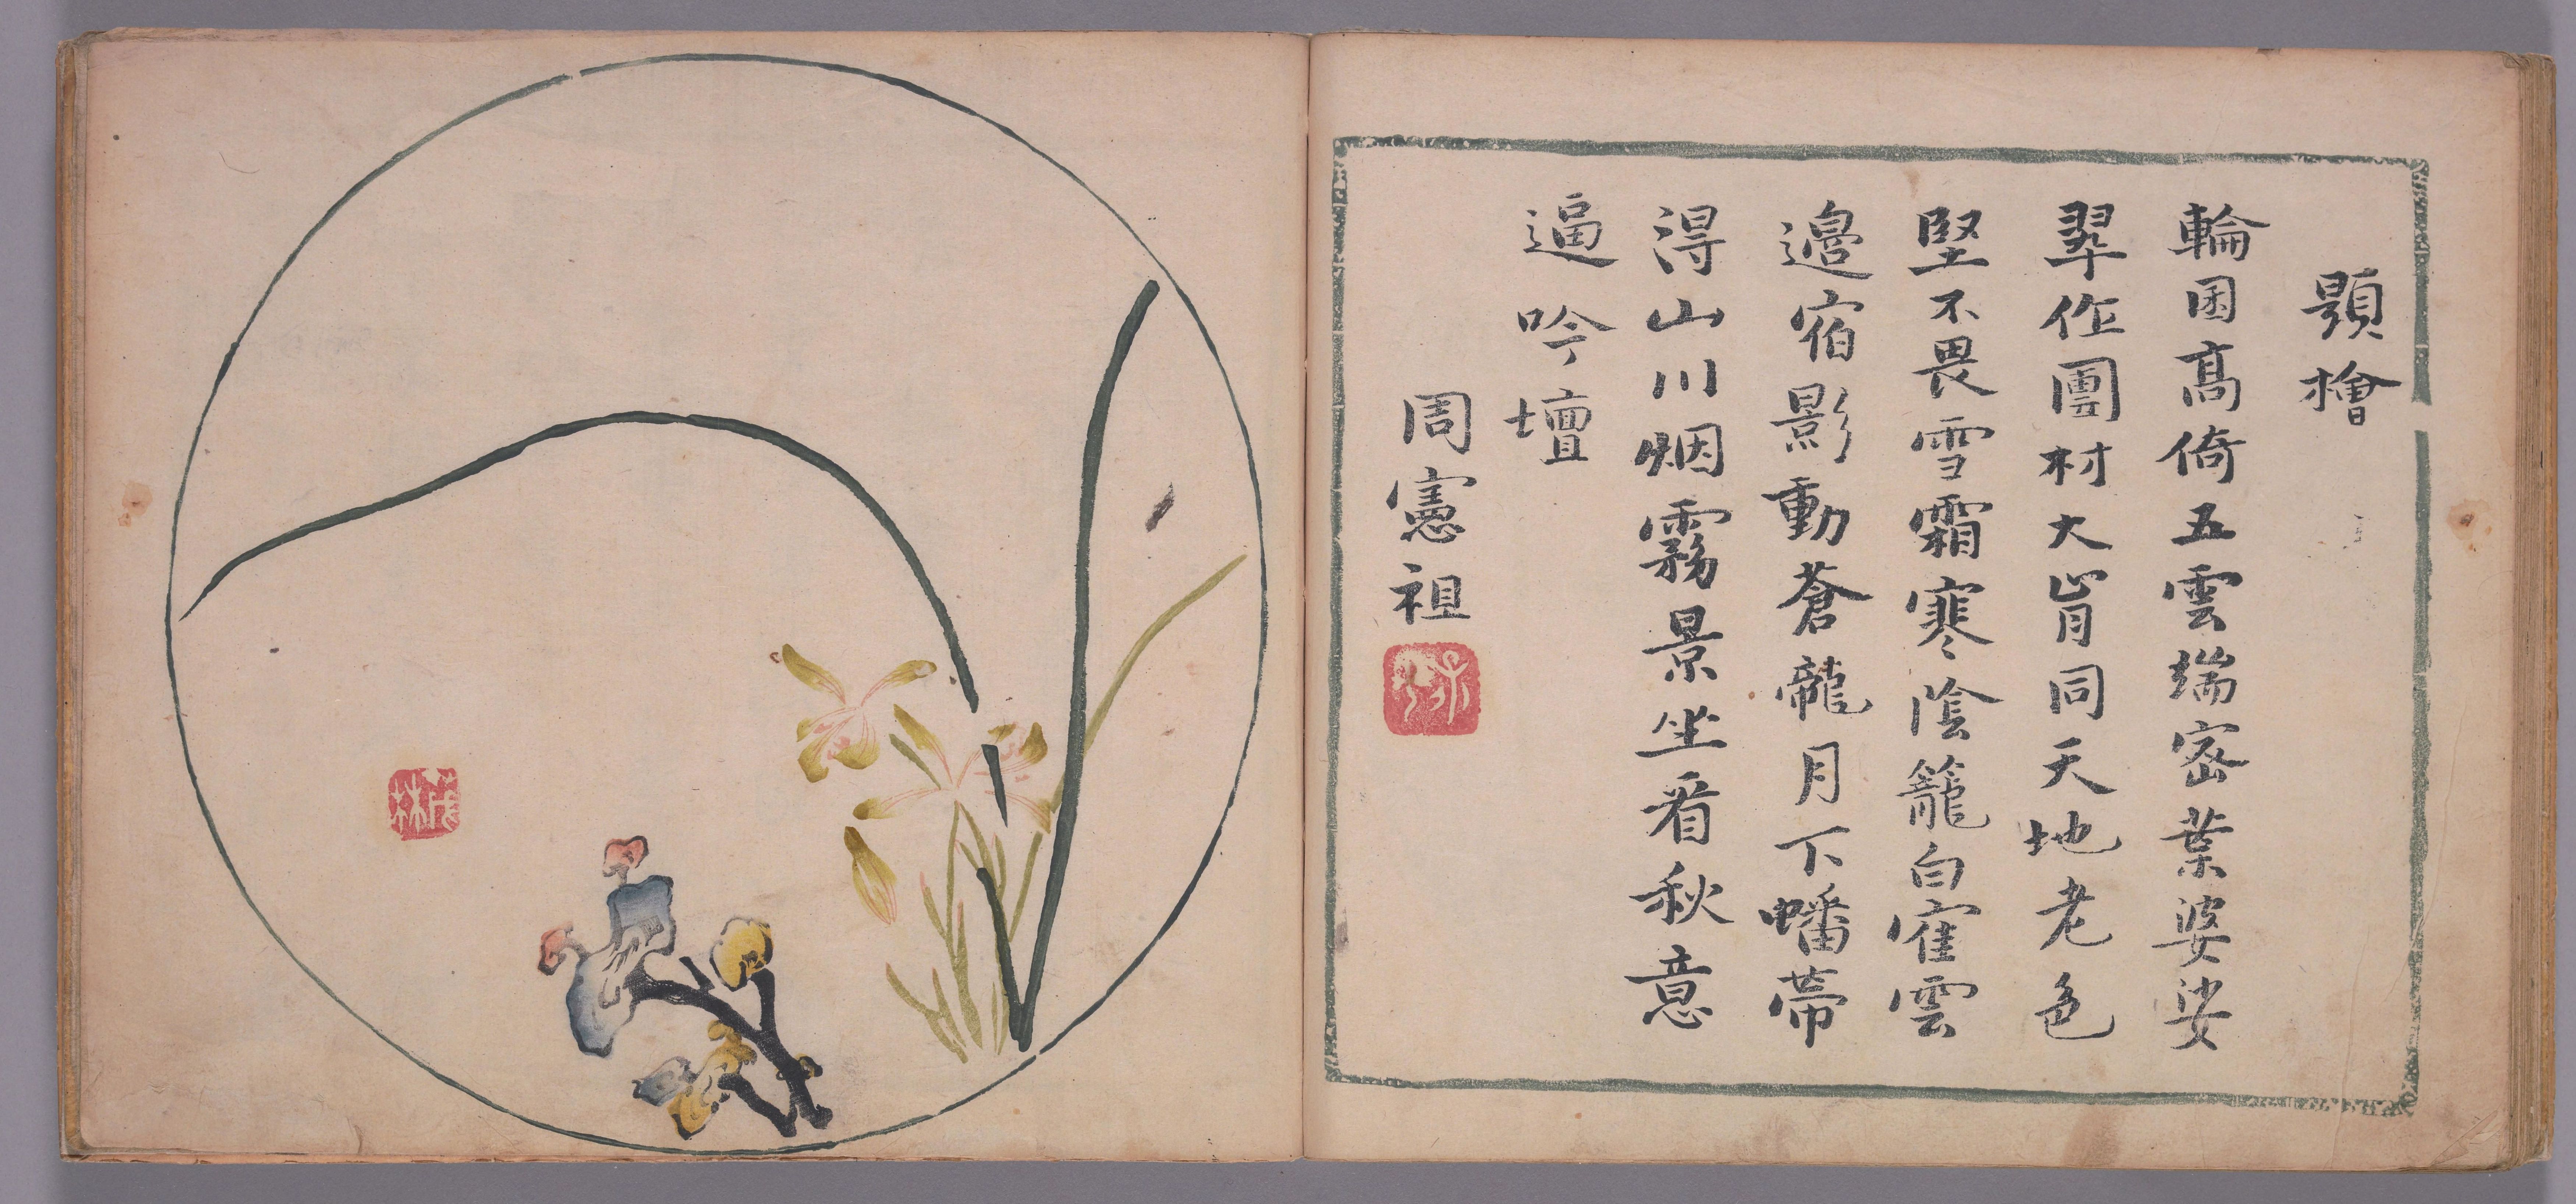 題檜
輪囷高倚五雲端密葉婆娑
翠作團材大肯同天地老色
堅不畏雪霜寒陰籠白寉雲
邊宿影動蒼龍月下蟠蒂
得山川烟霧景坐看秋意
逼吟壇
周憲祖